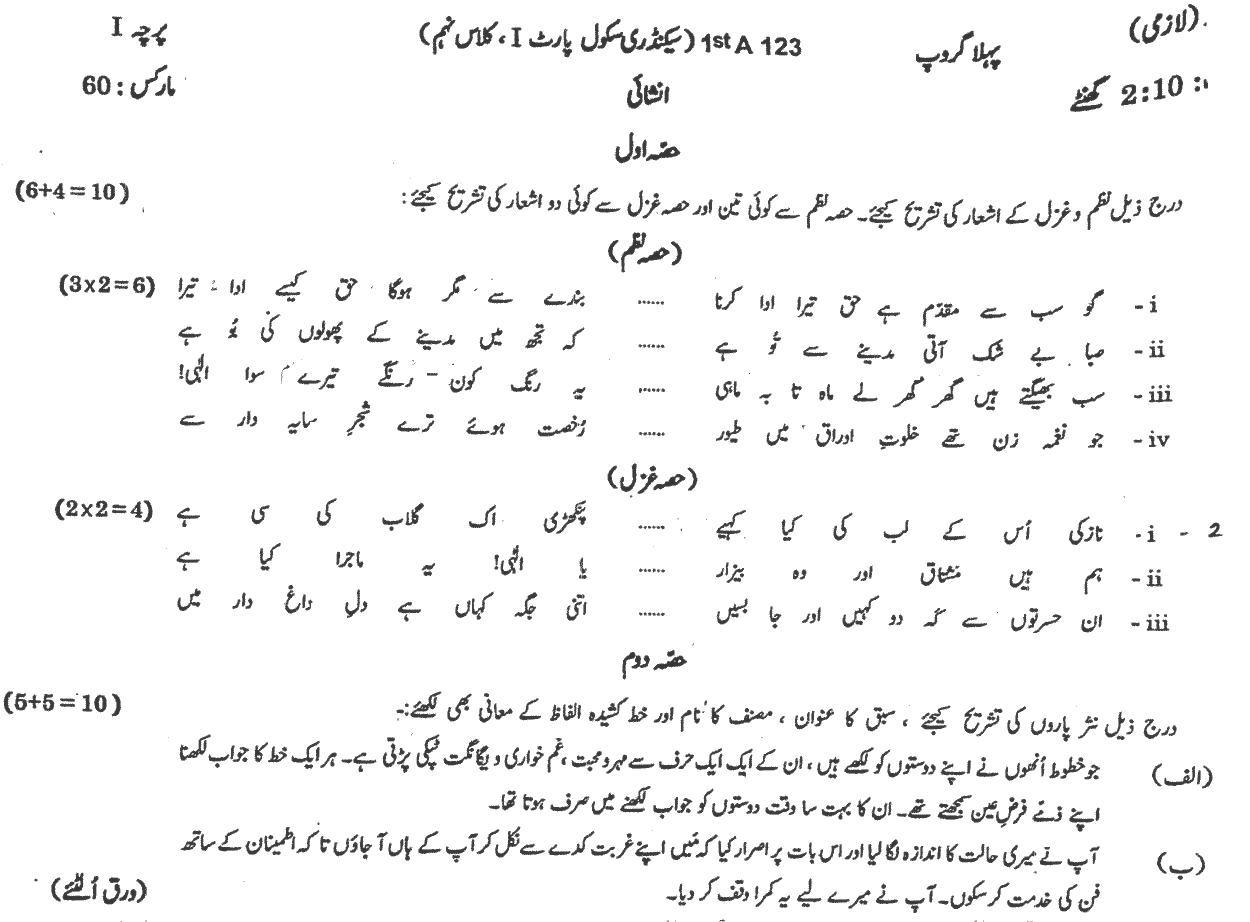 (لازمی) پہلا گروپ 1st A 123 (سیکنڈری سکول پارٹ I ، کلاس نہم) پرچہ I
2:10 گھنٹے انشائی مارکس : 60
حصّہ اول
درج ذیل نظم و غزل کے اشعار کی تشریح کیجئے۔ حصہ نظم سے کوئی تین اور حصہ غزل سے کوئی دو اشعار کی تشریح کیجئے: (6+4=10)
(حصہ نظم)
i- گو سب سے مقدّم ہے حق تیرا ادا کرنا ...... بندے سے مگر ہوگا حق کیسے ادا تیرا (3x2=6)
ii- صبا بے شک آتی مدینے سے تُو ہے ...... کہ تجھ میں مدینے کے پھولوں کی بُو ہے
iii- سب بھیگتے ہیں گھر گھر لے ماہ تا بہ ماہی ...... یہ رنگ کون رنگے تیرے سوا الٰہی!
iv- جو نغمہ زن تھے خلوتِ اوراق میں طیور ...... رُخصت ہوئے ترے شجرِ سایہ دار سے
(حصہ غزل)
2 - i- نازکی اُس کے لب کی کیا کہیے ...... پنکھڑی اک گلاب کی سی ہے (2x2=4)
ii- ہم ہیں مشتاق اور وہ بیزار ...... یا الٰہی! یہ ماجرا کیا ہے
iii- ان حسرتوں سے کہ دو کہیں اور جا بسیں ...... اتنی جگہ کہاں ہے دلِ داغ دار میں
حصّہ دوم
درج ذیل نثر پاروں کی تشریح کیجئے ، سبق کا عنوان ، مصنف کا نام اور خط کشیدہ الفاظ کے معانی بھی لکھئے:۔ (5+5=10)
(الف) جو خطوط اُنھوں نے اپنے دوستوں کو لکھے ہیں، ان کے ایک ایک حرف سے مہر و محبت ، غم خواری و یگانگت ٹپکی پڑتی ہے۔ ہر ایک خط کا جواب لکھنا
اپنے ذمّے فرضِ عین سمجھتے تھے۔ ان کا بہت سا وقت دوستوں کو جواب لکھنے میں صرف ہوتا تھا۔
(ب) آپ نے میری حالت کا اندازہ لگا لیا اور اس بات پر اصرار کیا کہ مَیں اپنے غربت کدے سے نکل کر آپ کے ہاں آ جاؤں تا کہ اطمینان کے ساتھ
فن کی خدمت کر سکوں۔ آپ نے میرے لیے یہ کمرا وقف کر دیا۔
(ورق اُلٹئے)